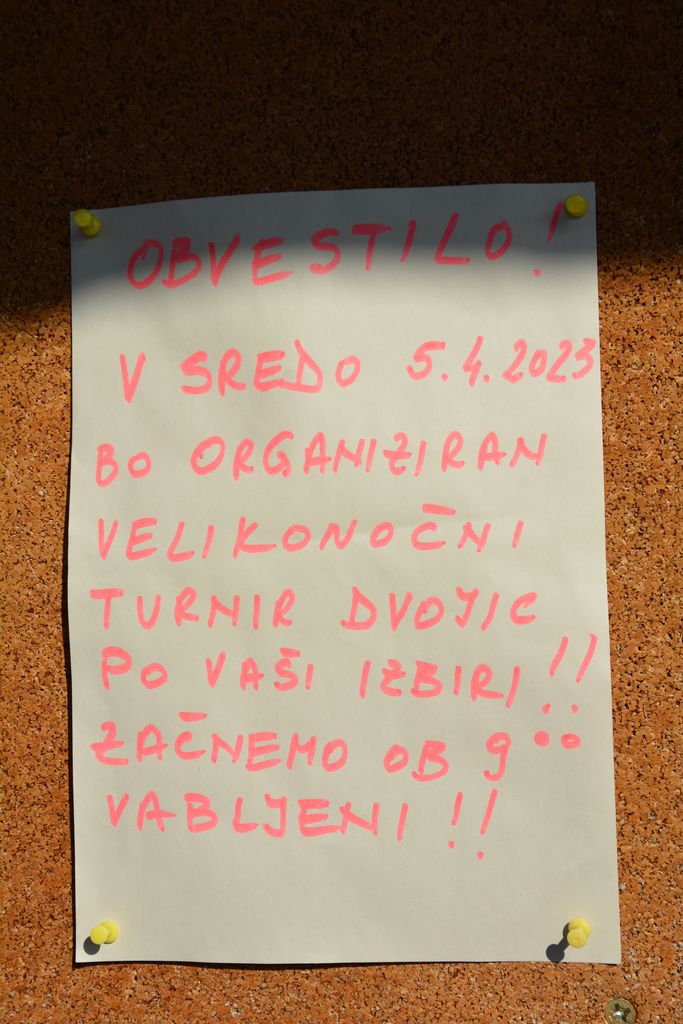 OBVESTILO!
V SREDO 5.4.2023
BO ORGANIZIRAN
VELIKONOČNI
TURNIR DVOJIC
PO VAŠI IZBIRI!!
ZAČNEMO OB 9°°
VABLJENI!!